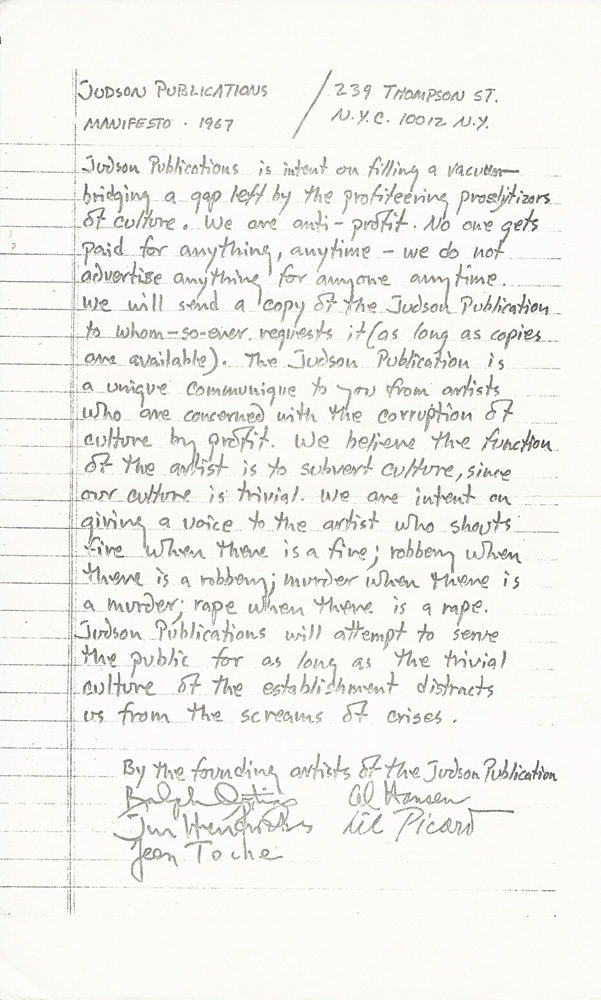 JUDSON PUBLICATIONS / 239 THOMPSON ST.
MANIFESTO · 1967 N.Y.C. 10012 N.Y.
Judson Publications is intent on filling a vacuum—
bridging a gap left by the profiteering proslytizors
of culture. We are anti-profit. No one gets
paid for anything, anytime – we do not
advertise anything for anyone anytime.
We will send a copy of the Judson Publication
to whom-so-ever requests it (as long as copies
are available). The Judson Publication is
a unique communique to you from artists
who are concerned with the corruption of
culture by profit. We believe the function
of the artist is to subvert culture, since
our culture is trivial. We are intent on
giving a voice to the artist who shouts
fire when there is a fire; robbery when
there is a robbery; murder when there is
a murder; rape when there is a rape.
Judson Publications will attempt to serve
the public for as long as the trivial
culture of the establishment distracts
us from the screams of crises.
By the founding artists of the Judson Publication
Ralph Ortiz Al Hansen
Jon Hendricks Lil Picard
Jean Toche